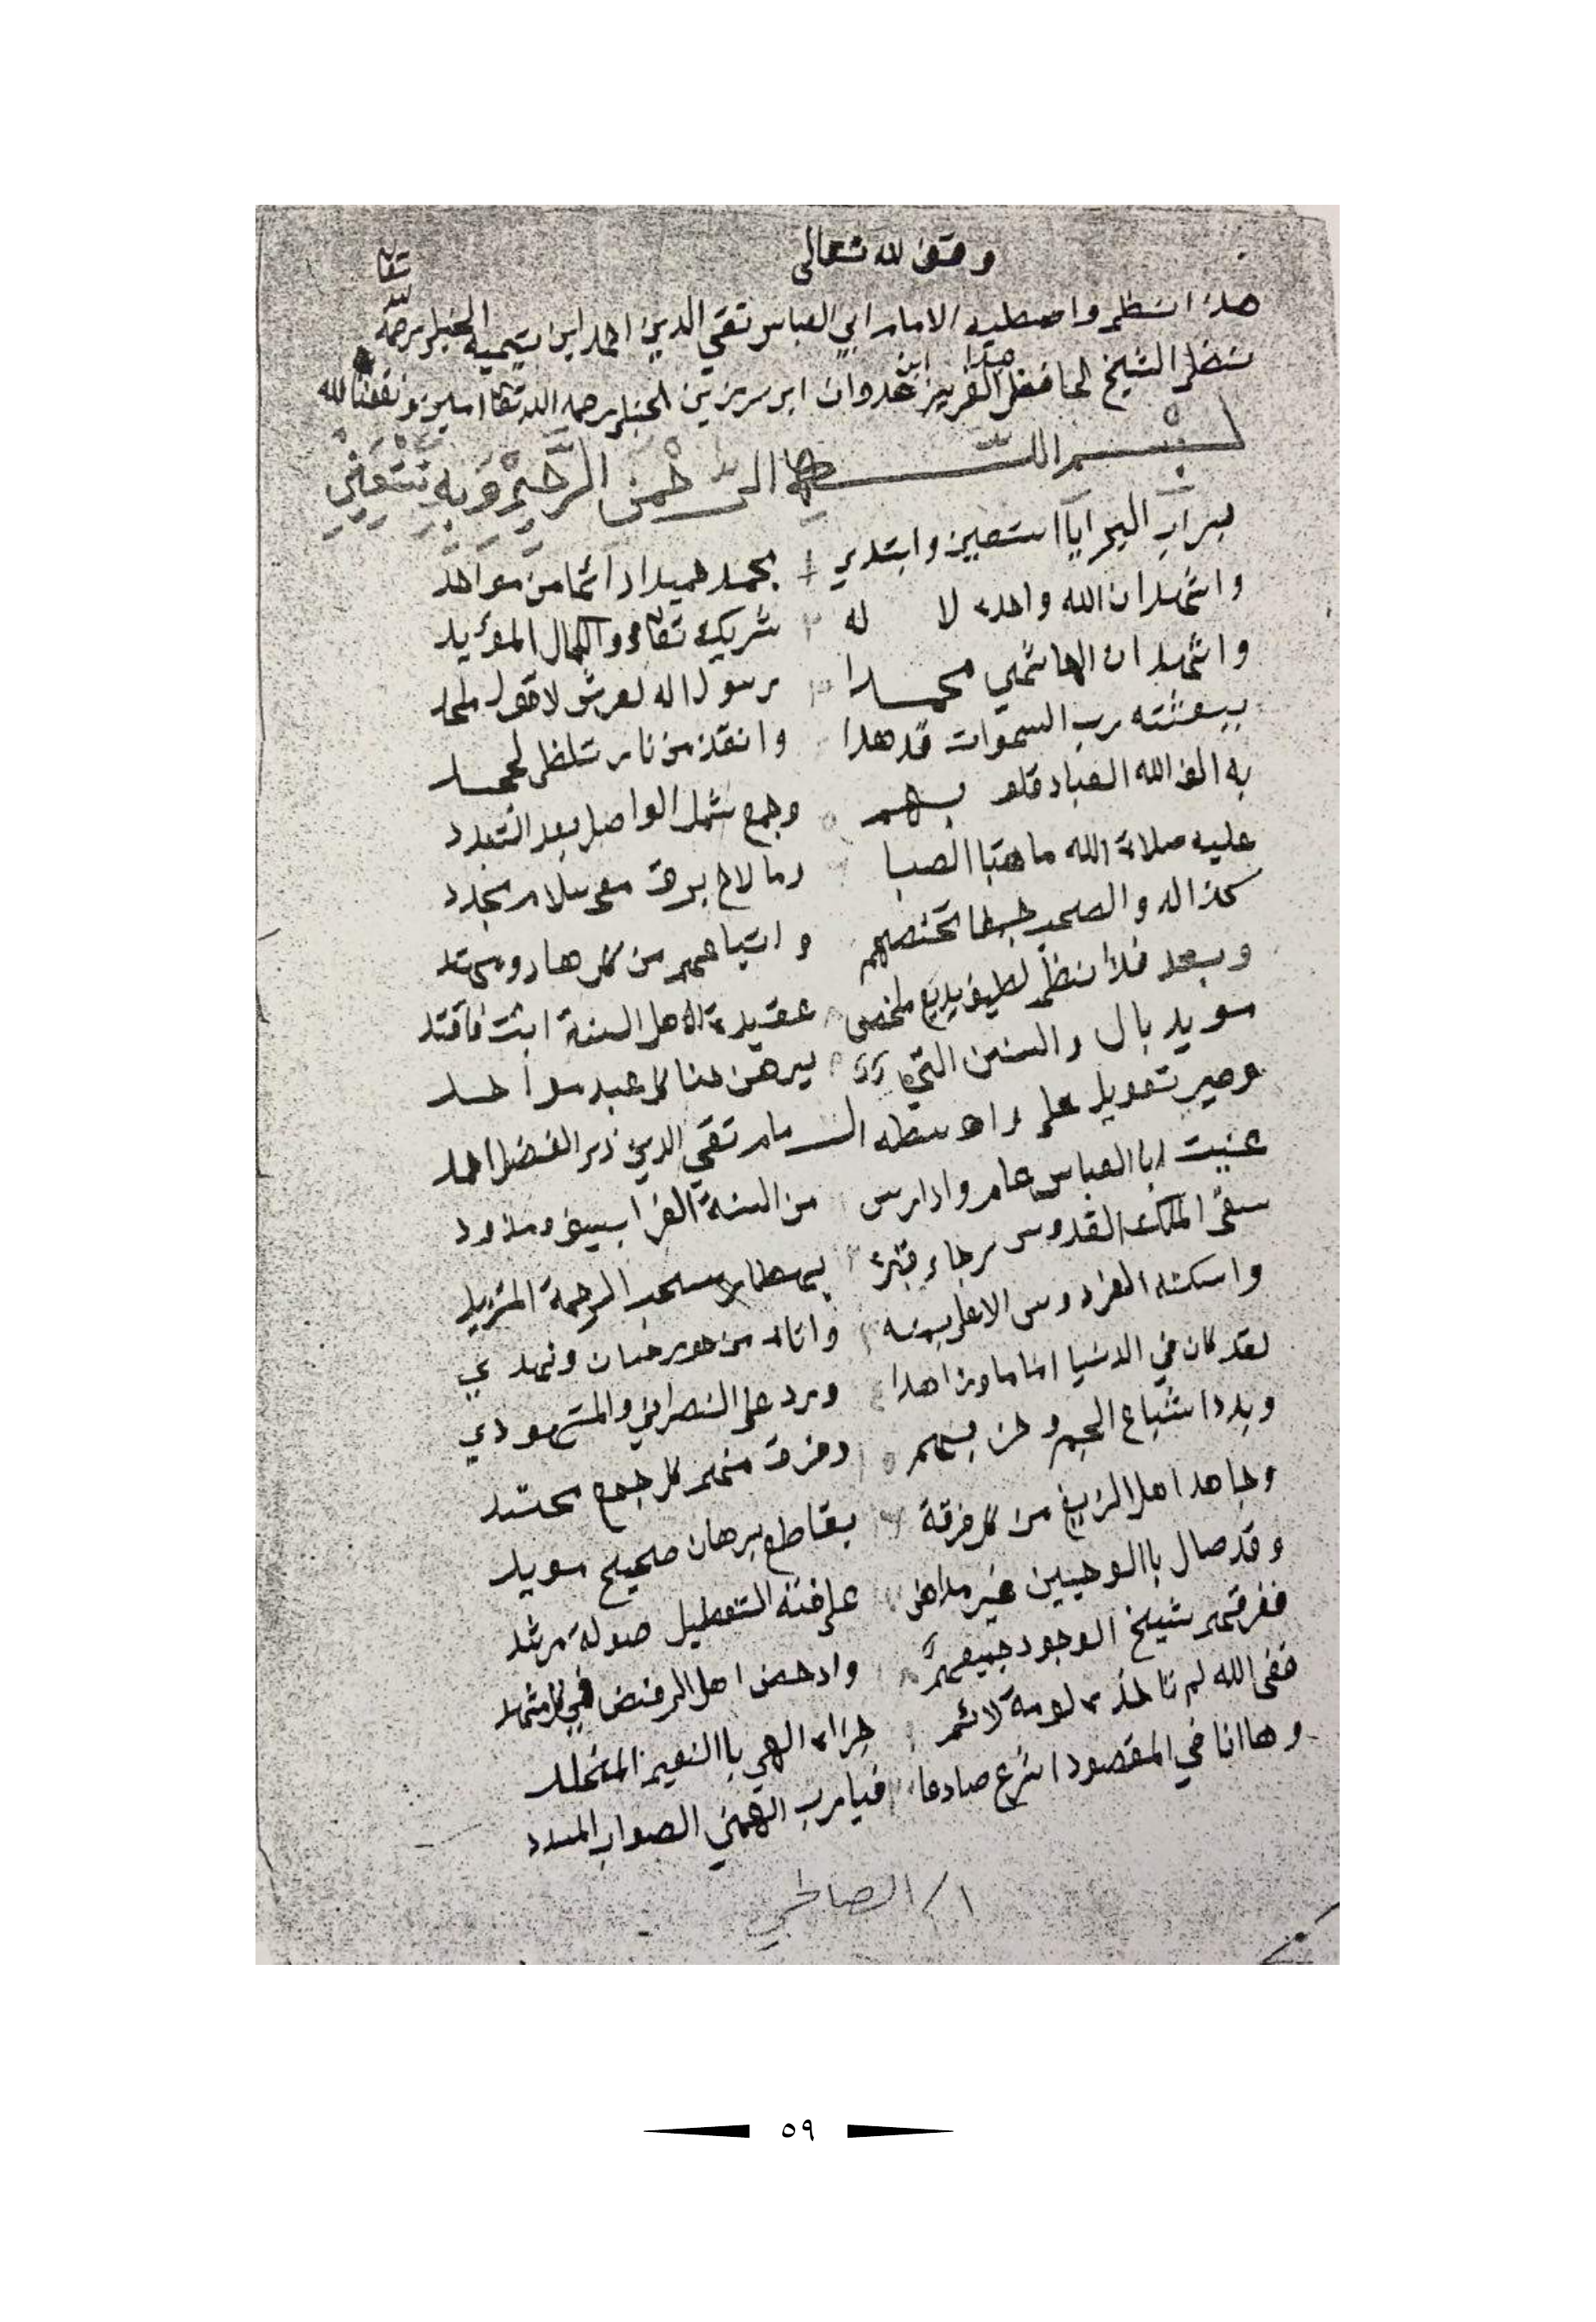 وقف لله تعالى
هذا نظم واصطيه الامام ابي العباس تقي الدين احمد ابن تيميه الحنبلي رحمه الله تعا
نظم الشيخ الحافظ عبد العزيز ابن عدوان ابن رزين الحنبلي رحمه الله تعا امين ونفعنا الله
بسم الله الرحمن الرحيم وبه نستعين
برب البرايا استعين وابتدي بحمد حميدا دائما من موحد
واشهد ان الله واحد لا له شريك تعالى والكمال المؤيد
واشهد ان الهاشمي محمدا رسول اله لعرش لا قول ملحد
ببعثته رب السموات قد هدا وانقذ من نار تلظى لجحد
به الف الله العباد قلو بهم وجمع شمل الواصل بعد التبدد
عليه صلاة الله ما هبا الصبا وما لاح برق مع سلام مجدد
كذا اله والصحب جمعا تخصهم واتباعهم من كل هاد ومهتد
وبعد فذا نظم لطيف بديع ملخص عقيدة لاهل السنة اثبت فاقتد
سويد بال والسنن التي يبرهن هنا كل عبد موحد
وصير تعويل على واسطه الامام تقي الدين ذي الفضل احمد
عنيت ابا العباس عامر وادارس من السنة الغرا بسيف ومذود
سقى الملك القدوس ارجاء قبره بمهطال سحب الرحمة المتزيد
واسكنه الفردوس الاعلى بمنه واناله من حور حسان ونهدي
لقد كان في الدنيا اماما وزاهدا ورد على النصراني والمتهودي
وبدد اشياع الجهم وحزبهم ومزق منهم كل جمع محشد
وجاهد اهل الزيغ من كل فرقة بقاطع برهان صحيح مويد
وقد صال باالوحيين غير مداهن على فئة التعطيل صولة مرشد
ففرقهم شيخ الوجود جميعهم وادحض اهل الرفض في كل مشهد
ففي الله لم تاخذه لومة لائم جزاه الهي باالنعيم المخلد
وها انا في المقصود اشرع صادعا فيا رب الهمني الصواب المسدد
١/ الصالحي
٥٩